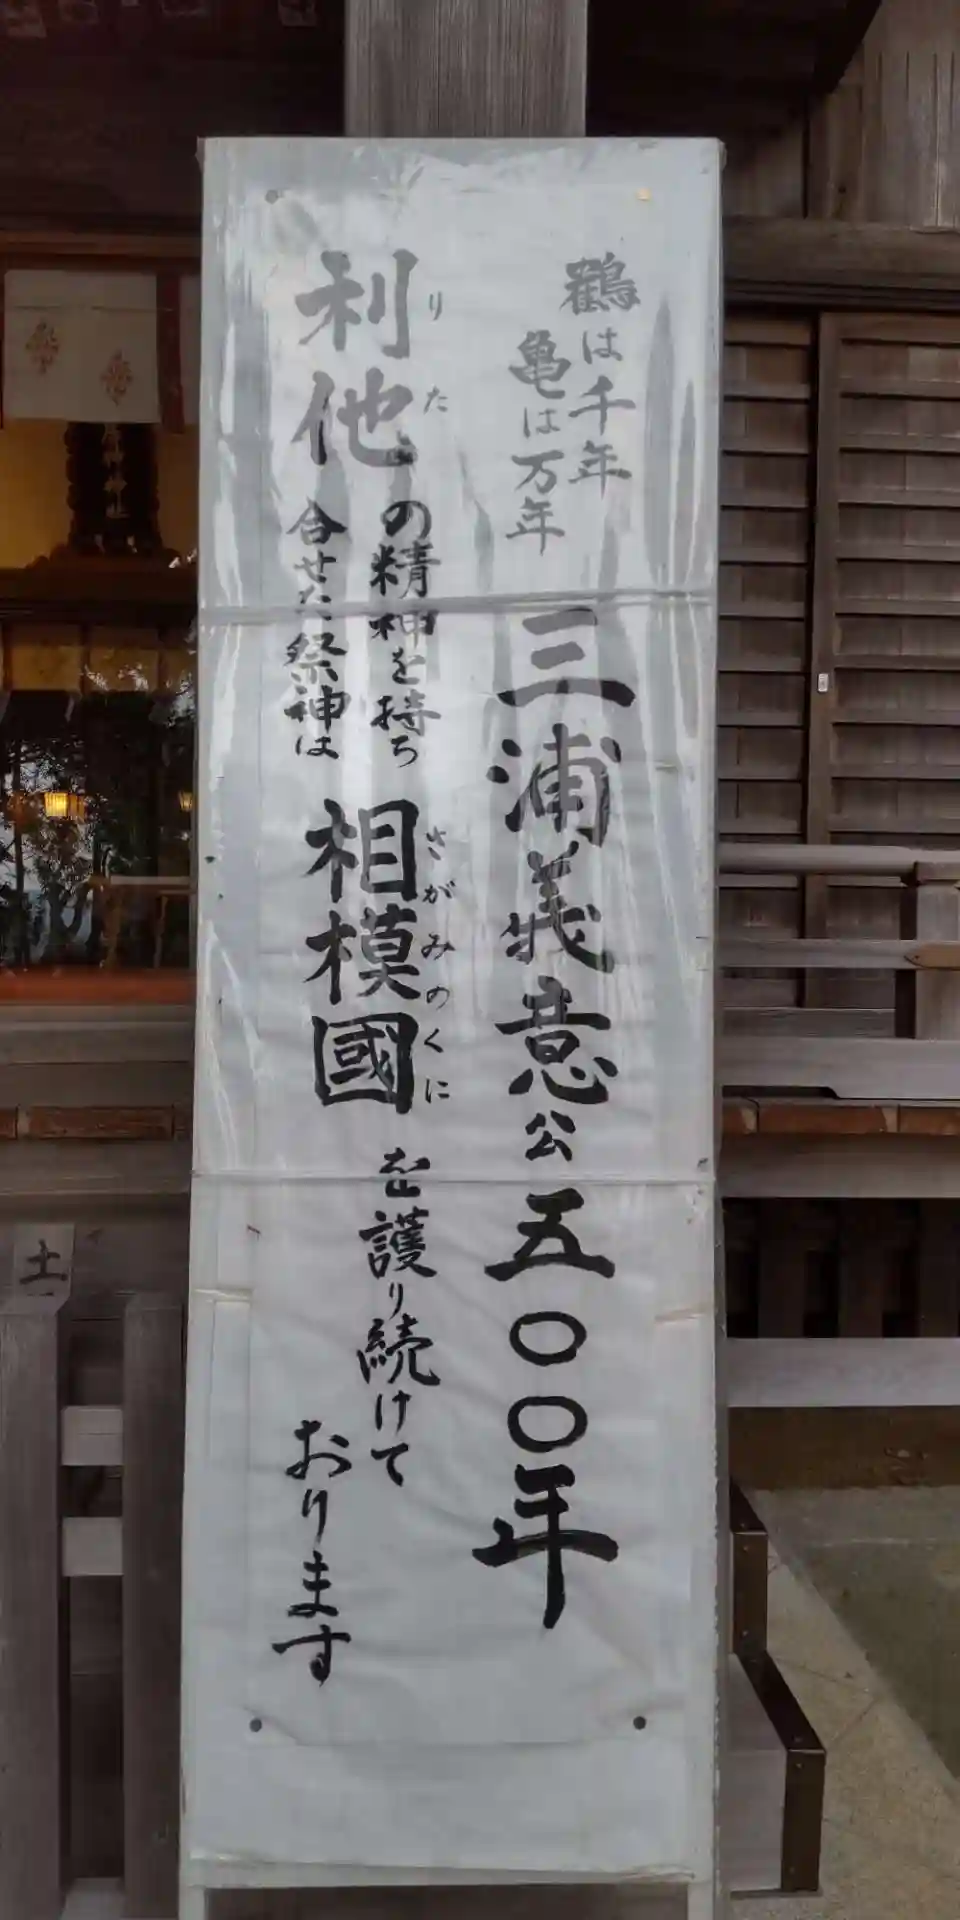 鶴は千年
亀は万年
三浦義意公五〇〇年
利他の精神を持ち
りた
合せた祭神は
相模國を護り続けて
さがみのくに
おります
神社
土